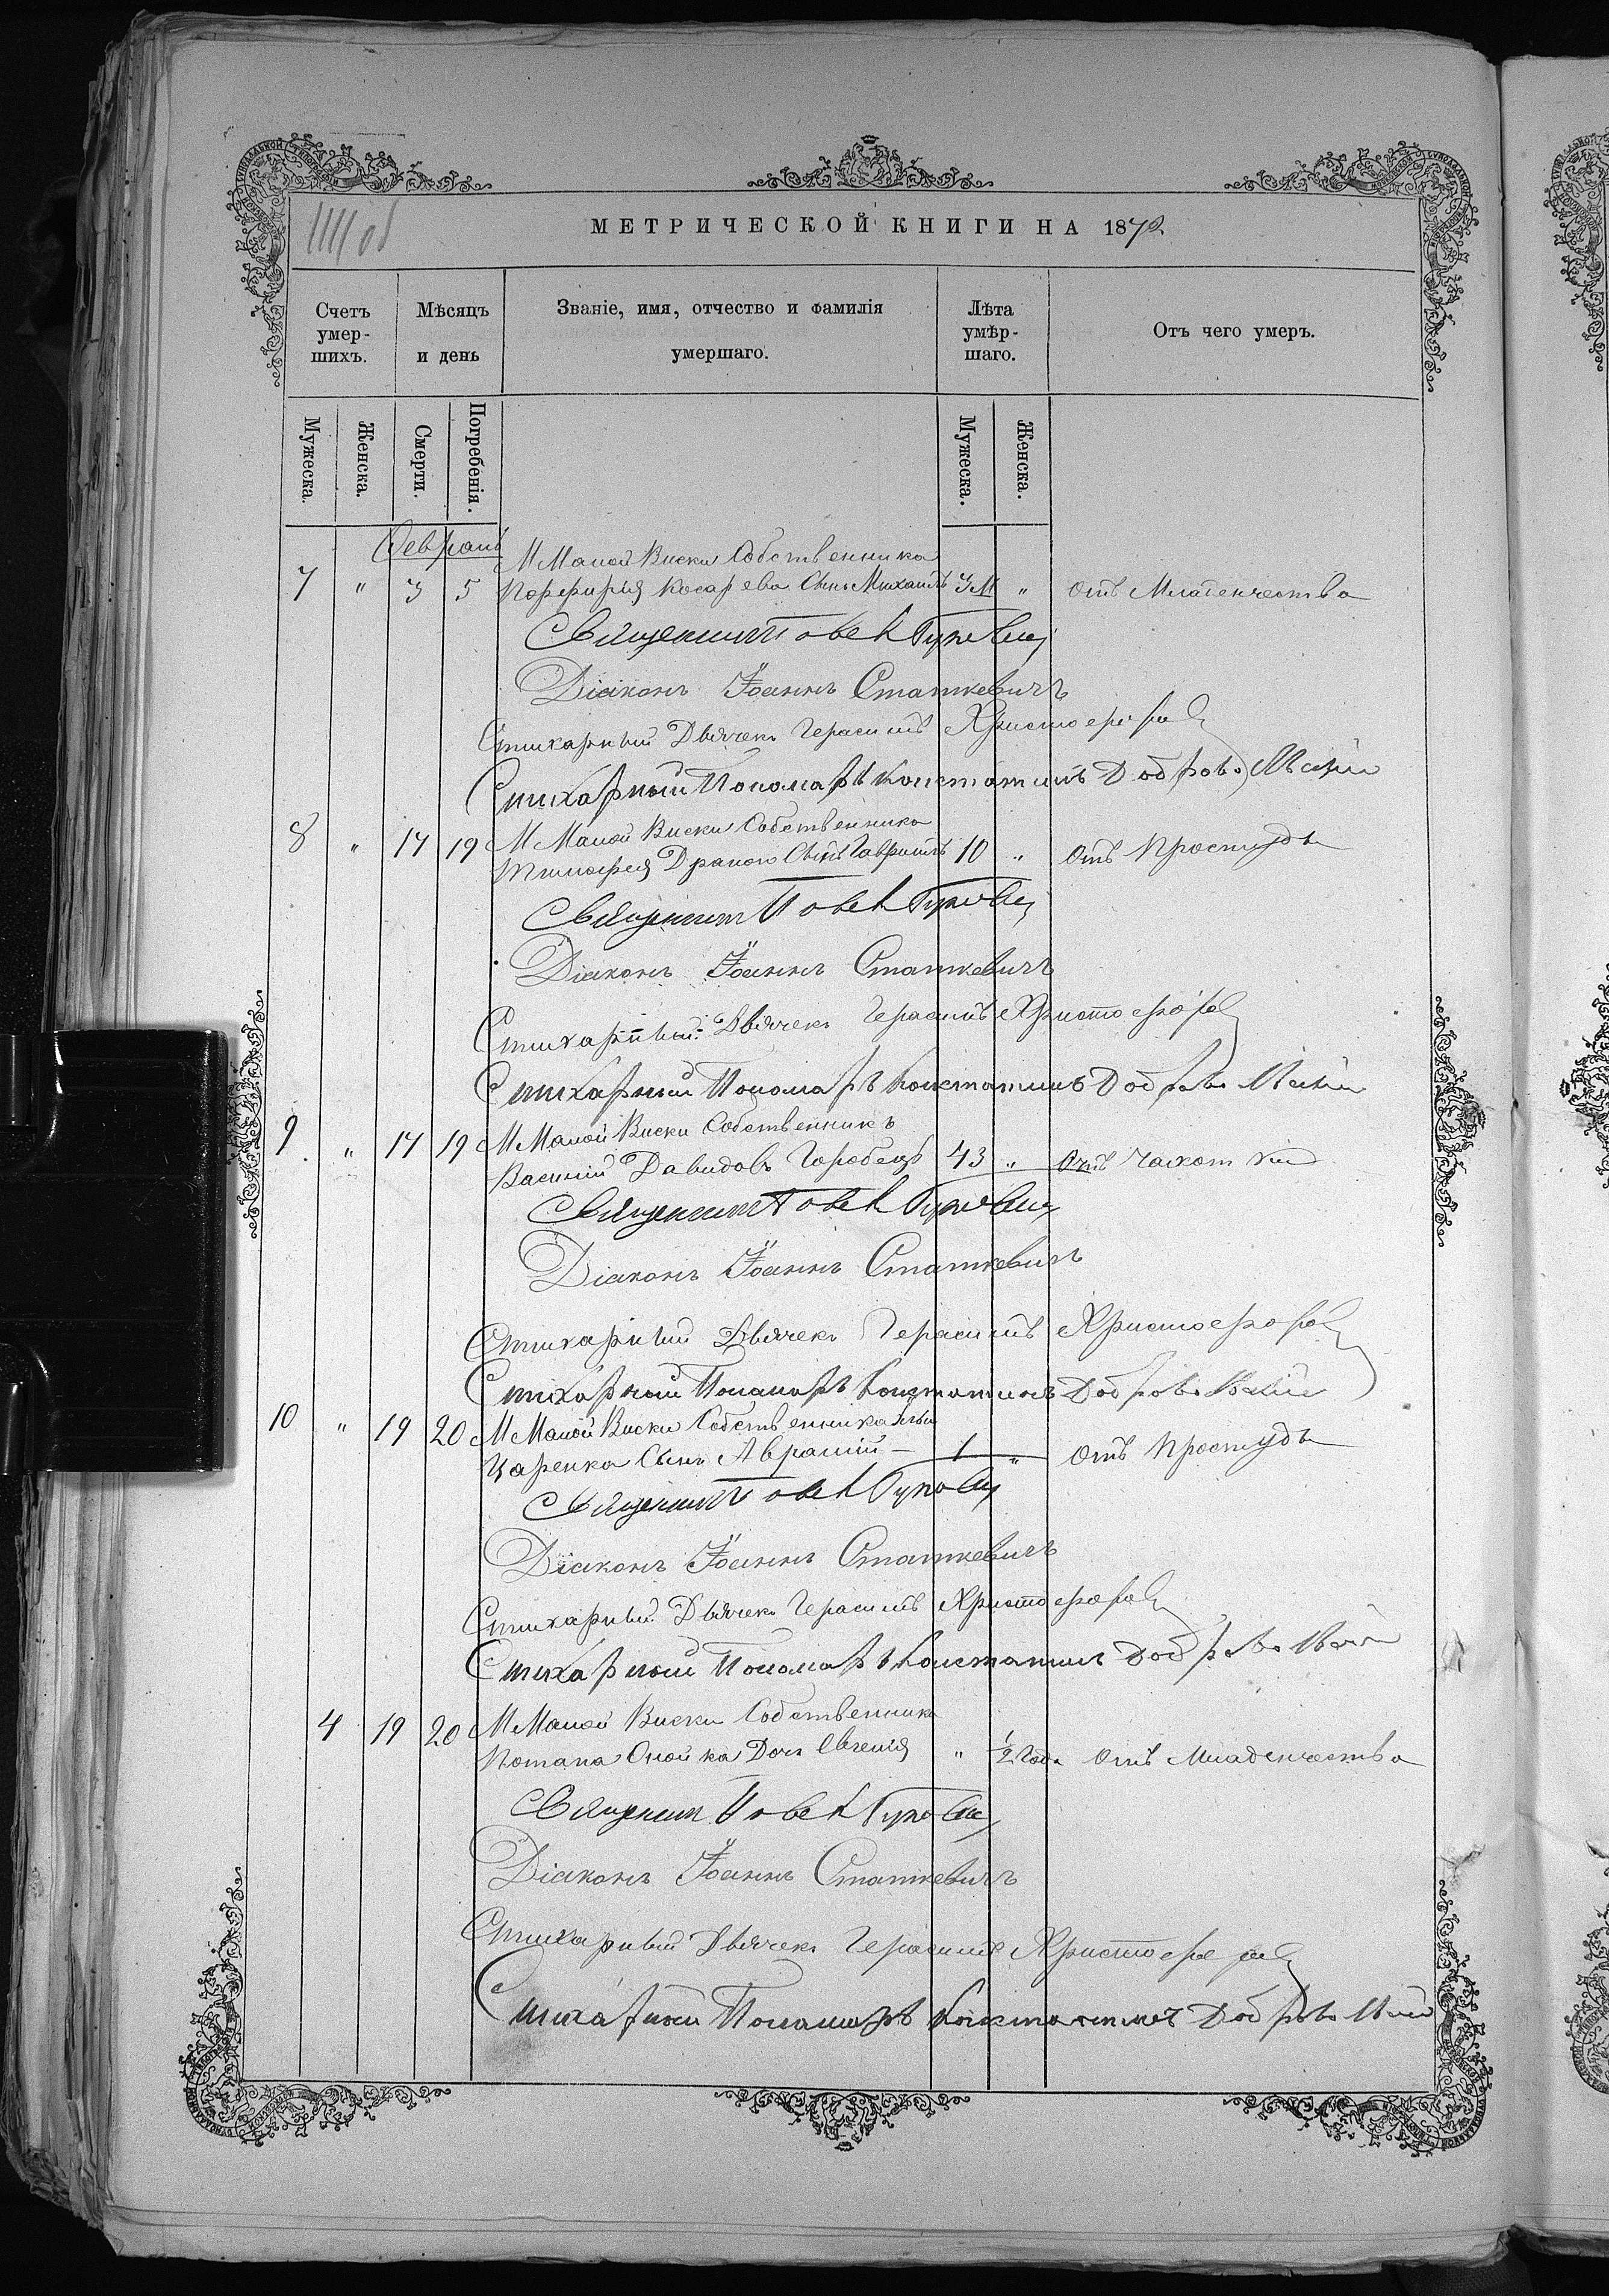 МЕТРИЧЕСКОЙ КНИГИ НА 1872
Счетъ умер-шихъ.
Мѣсяцъ и день
Званіе, имя, отчество и фамилія умершаго.
Лѣта умѣр-шаго.
Отъ чего умеръ.
Мужеска. Женска. Смерти. Погребенія. Мужеска. Женска.
Февраль
М Малой Виски Собственника
7 " 3 5 Порфирія Косарева Сынъ Михаилъ 3 М " Отъ Младенчества
Священникъ Павелъ
Діаконъ Іоаннъ Статкевичъ
Стихарный Дьячекъ Герасимъ Христофоров
Стихарный Пономарь Константинъ Добровольскій
8 " 17 19 М Малой Виски Собственника
Тимофея Драного Сынъ Гавріилъ 10 " Отъ Простуды
Священникъ Павелъ
Діаконъ Іоаннъ Статкевичъ
Стихарный Дьячекъ Герасимъ Христофоров
Стихарный Пономарь Константинъ Добровольскій
9 " 17 19 М Малой Виски Собственникъ
Василій Давидовъ Горобецъ 43 " Отъ Чахотки
Священникъ Павелъ
Діаконъ Іоаннъ Статкевичъ
Стихарный Дьячекъ Герасимъ Христофоров
Стихарный Пономарь Константинъ Добровольскій
10 " 19 20 М Малой Виски Собственника Ильи
Царенка Сынъ Аврамій – 1 " Отъ Простуды
Священникъ Павелъ
Діаконъ Іоаннъ Статкевичъ
Стихарный Дьячекъ Герасимъ Христофоров
Стихарный Пономарь Константинъ Добровольскій
4 19 20 М Малой Виски Собственника
Потапа Онойка Дочь Евгенія " 1/2 года Отъ Младенчества
Священникъ Павелъ
Діаконъ Іоаннъ Статкевичъ
Стихарный Дьячекъ Герасимъ Христофоров
Стихарный Пономарь Константинъ Добровольскій